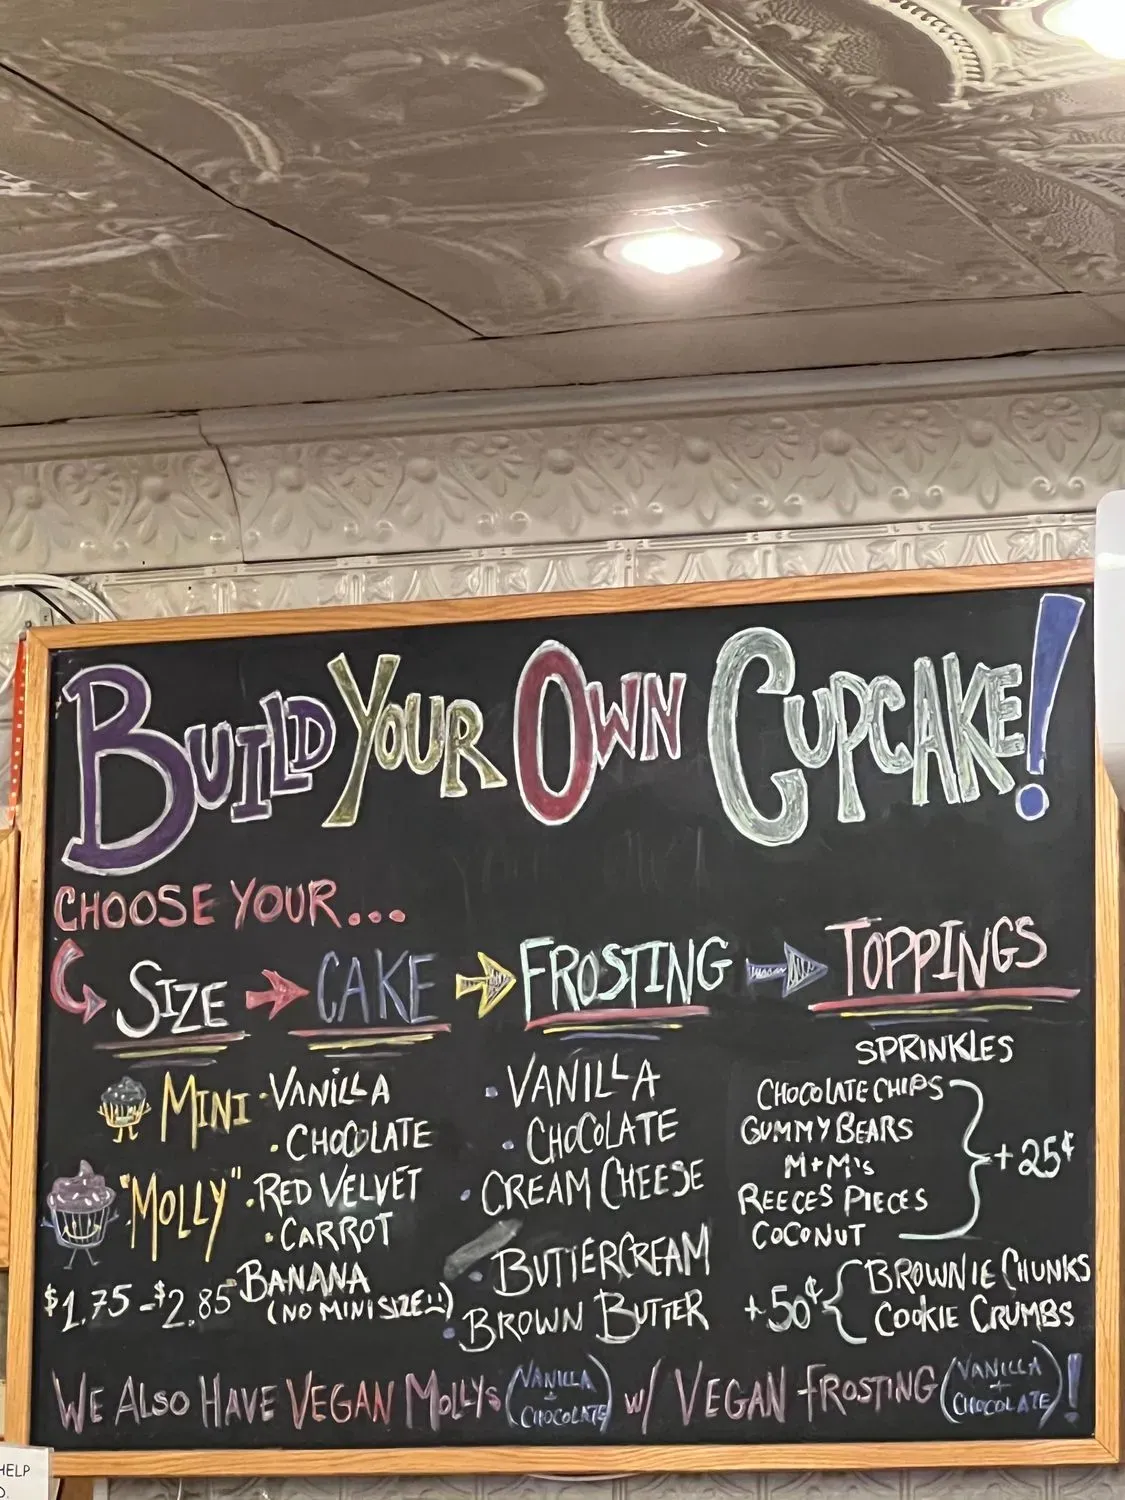 BUILD YOUR OWN CUPCAKE!
CHOOSE YOUR...
SIZE
MINI
"MOLLY"
$1.75 - $2.85
CAKE
• VANILLA
• CHOCOLATE
• RED VELVET
• CARROT
• BANANA
(NO MINI SIZE :()
FROSTING
• VANILLA
• CHOCOLATE
• CREAM CHEESE
• BUTTERCREAM
• BROWN BUTTER
TOPPINGS
SPRINKLES
CHOCOLATE CHIPS
GUMMY BEARS
M+M's
REECES PIECES
COCONUT
+25¢
+50¢
BROWNIE CHUNKS
COOKIE CRUMBS
WE ALSO HAVE VEGAN MOLLYS (VANILLA + CHOCOLATE) w/ VEGAN FROSTING (VANILLA + CHOCOLATE)!
HELP